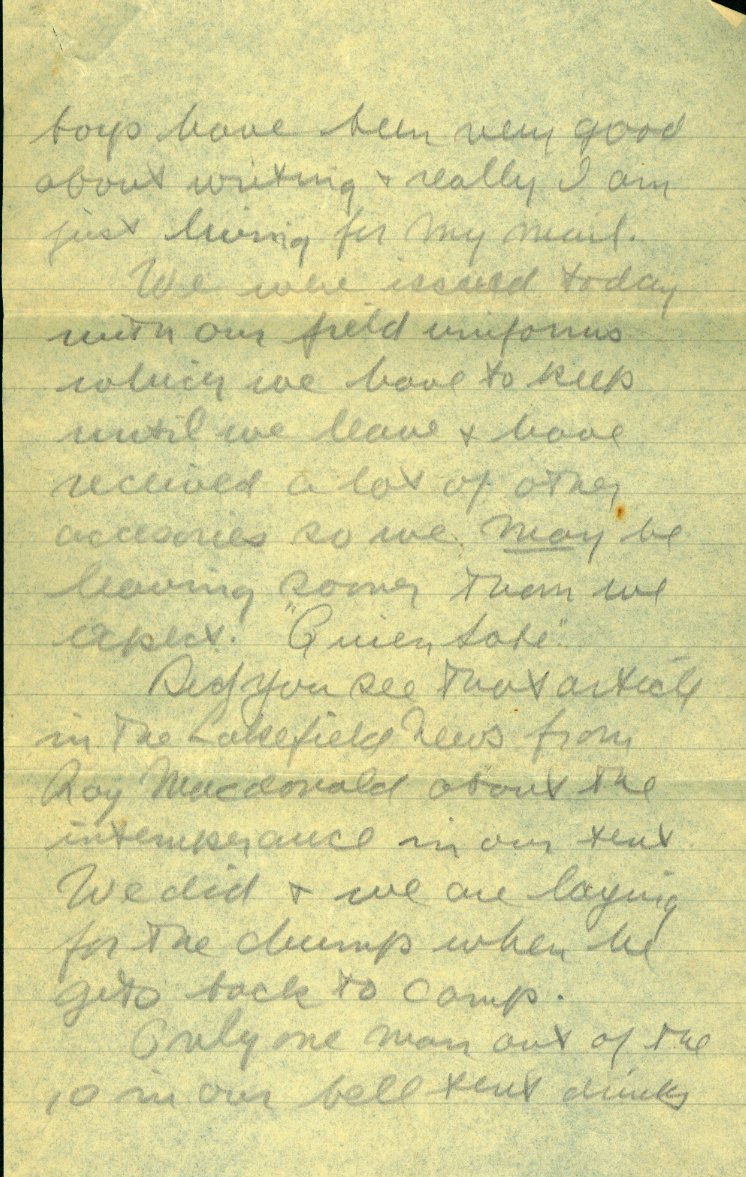 boys have been very good
about writing & really I am
just living for my mail.
We were issued today
with our field uniforms
which we have to keep
until we leave & have
received a lot of other
accesories so we may be
leaving sooner than we
expect. "Quien Sabe".
Did you see that article
in the Lakefield News from
Roy Macdonald about the
intemperance in our tent.
We did & we are laying
for the chump when he
gets back to camp.
Only one man out of the
10 in our bell tent drinks